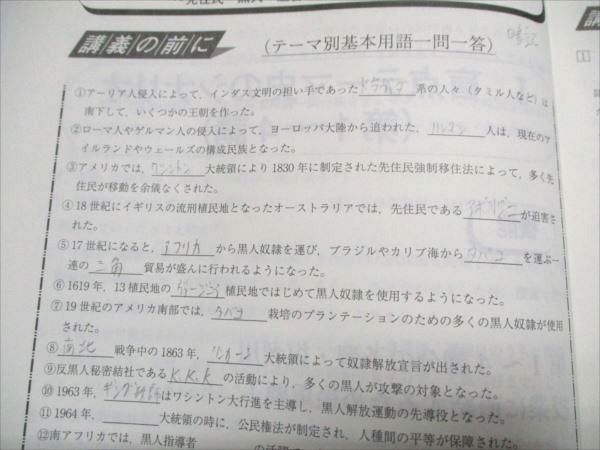 先住民・黒人
講義の前に
(テーマ別基本用語一問一答)
暗記
①アーリア人侵入によって，インダス文明の担い手であった ドラヴィダ 系の人々（タミル人など）は
南下して，いくつかの王朝を作った。
②ローマ人やゲルマン人の侵入によって，ヨーロッパ大陸から追われた， 人は，現在のア
イルランドやウェールズの構成民族となった。
③アメリカでは，ワシントン 大統領により1830年に制定された先住民強制移住法によって，多く先
住民が移動を余儀なくされた。
④18世紀にイギリスの流刑植民地となったオーストラリアでは，先住民である アボリジニー が迫害さ
れた。
⑤17世紀になると，アフリカ から黒人奴隷を運び，ブラジルやカリブ海から タバコ を運ぶ一
連の 三角 貿易が盛んに行われるようになった。
⑥1619年，13植民地の ヴァージニア 植民地ではじめて黒人奴隷を使用するようになった。
⑦19世紀のアメリカ南部では，タバコ 栽培のプランテーションのための多くの黒人奴隷が使用
された。
⑧ 南北 戦争中の1863年，リンカーン 大統領によって奴隷解放宣言が出された。
⑨反黒人秘密結社である K.K.K の活動により，多くの黒人が攻撃の対象となった。
⑩1963年，キング牧師 はワシントン大行進を主導し，黒人解放運動の先導役となった。
⑪1964年， 大統領の時に，公民権法が制定され，人種間の平等が保障された。
⑫南アフリカでは，黒人指導者